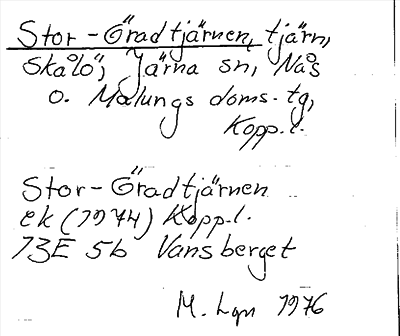 Stor-Öradtjärnen, tjärn,
Skålö, Järna sn, Nås
o. Malungs doms.tg,
Kopp.l.
Stor-Öradtjärnen
ek (1974) Kopp.l.
13E 5b Vansberget
M. Lgn 1976